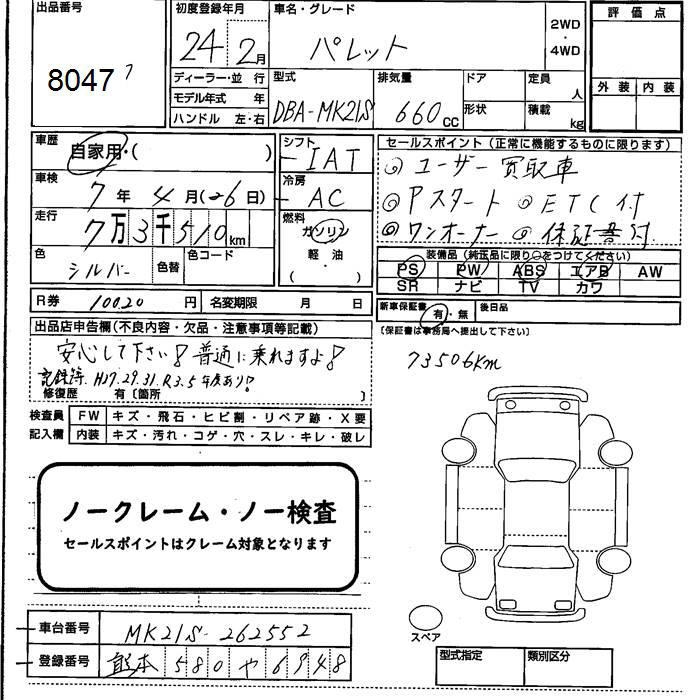 出品番号
8047 7
初度登録年月
24年2月
車名・グレード
パレット
2WD
・
4WD
評価点
外装 内装
ディーラー・並行
モデル年式 年
ハンドル 左・右
型式
DBA-MK21S
排気量
660cc
ドア
形状
定員
人
積載
kg
車歴
自家用・( )
車検
7年4月(26日)
走行
7万3千510km
色
シルバー
色替
色コード
シフト
IAT
冷房
AC
燃料
ガソリン
軽油
( )
セールスポイント(正常に機能するものに限ります)
◎ユーザー買取車
◎Pスタート ◎ETC付
◎ワンオーナー ◎保証書付
装備品(純正品に限り○をつけてください)
PS PW ABS エアB AW
SR ナビ TV カワ
R券 10020円
名変期限 月 日
新車保証書 有・無
後日品
(保証書は事務局へ提出して下さい)
出品店申告欄(不良内容・欠品・注意事項等記載)
安心して下さい!普通に乗れますよ!
記録簿 H27.29.31.R3.5年度あり!
修復歴 有〔箇所 〕
73506km
検査員 FW キズ・飛石・ヒビ割・リペア跡・X要
記入欄 内装 キズ・汚れ・コゲ・穴・スレ・キレ・破レ
ノークレーム・ノー検査
セールスポイントはクレーム対象となります
スペア
車台番号 MK21S-262552
登録番号 熊本580や6948
型式指定
類別区分